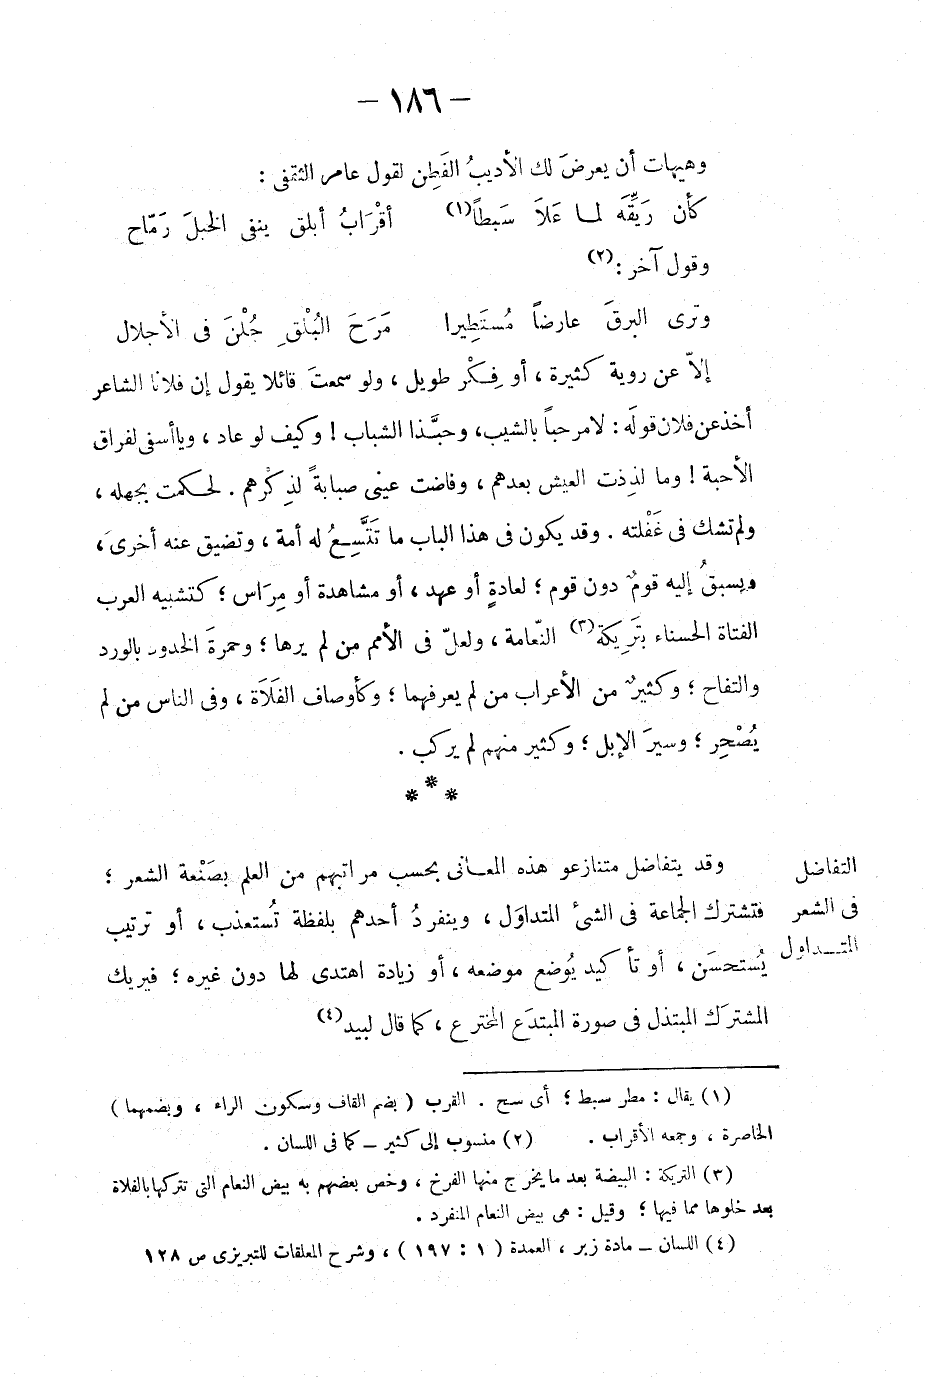 – ١٨٦ –
وهيهات أن يعرضَ لك الأديبُ الفَطِن لقول عامر الثقفى :
كأن رَيِّقَه لما عَلاَ سَبطاً(١) أقْرَابُ أبلق ينفى الخيلَ رَمّاح
وقول آخر :(٢)
وترى البرقَ عارضاً مُستَطِيرا مَرَحَ البُلْقِ جُلْنَ فى الأجلال
إلاّ عن روية كثيرة ، أو فِكْر طويل ، ولو سمعتَ قائلا يقول إن فلانا الشاعر
أخذ عن فلان قولَه : لا مرحباً بالشيب، وحبَّذا الشباب ! وكيف لو عاد ، ويا أسفى لفراق
الأحبة ! وما لذِذت العيش بعدهم ، وفاضت عينى صبابةً لذِكْرهم . لحكمت بجهله ،
ولم تشك فى غَفْلته . وقد يكون فى هذا الباب ما تَتَّسِعُ له أمة ، وتضيق عنه أخرى ،
ويسبقُ إليه قومٌ دون قوم ؛ لعادةٍ أو عهد ، أو مشاهدة أو مِرَاس ؛ كتشبيه العرب
الفتاة الحسناء بتَرِيكة(٣) النّعامة ، ولعلّ فى الأمم من لم يرها ؛ وحمرةَ الخدود بالورد
والتفاح ؛ وكثيرٌ من الأعراب من لم يعرفهما ؛ وكأوصاف الفَلَاة ، وفى الناس من لم
يُصْحِر ؛ وسيرَ الإبل ؛ وكثير منهم لم يركب .
* * *
التفاضل
فى الشعر
المتداول
وقد يتفاضل متنازعو هذه المعانى بحسب مراتبهم من العلم بصَنْعة الشعر ؛
فتشترك الجماعة فى الشئ المتداوَل ، وينفردُ أحدهم بلفظة تُستعذب ، أو ترتيب
يُستحسَن ، أو تأكيد يُوضع موضعه ، أو زيادة اهتدى لها دون غيره ؛ فيريك
المشترَك المبتذل فى صورة المبتدَع المخترع ، كما قال لبيد(٤)
(١) يقال : مطر سبط ؛ أى سح . القرب ( بضم القاف وسكون الراء ، وبضمهما )
الخاصرة ، وجمعه الأقراب . (٢) منسوب إلى كثير – كما فى اللسان .
(٣) التريكة : البيضة بعد ما يخرج منها الفرخ ، وخص بعضهم به بيض النعام التى تتركها بالفلاة
بعد خلوها مما فيها ؛ وقيل : هى بيض النعام المنفرد .
(٤) اللسان – مادة زبر ، العمدة ( ١ : ١٩٧ ) ، وشرح المعلقات للتبريزى ص ١٢٨